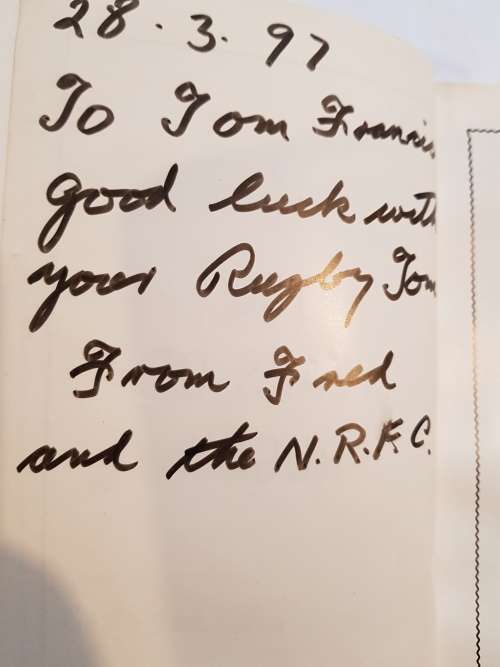 28.3.97
To Tom Francis
Good luck with
your Rugby Tom
From Fred
and the N.R.F.C.